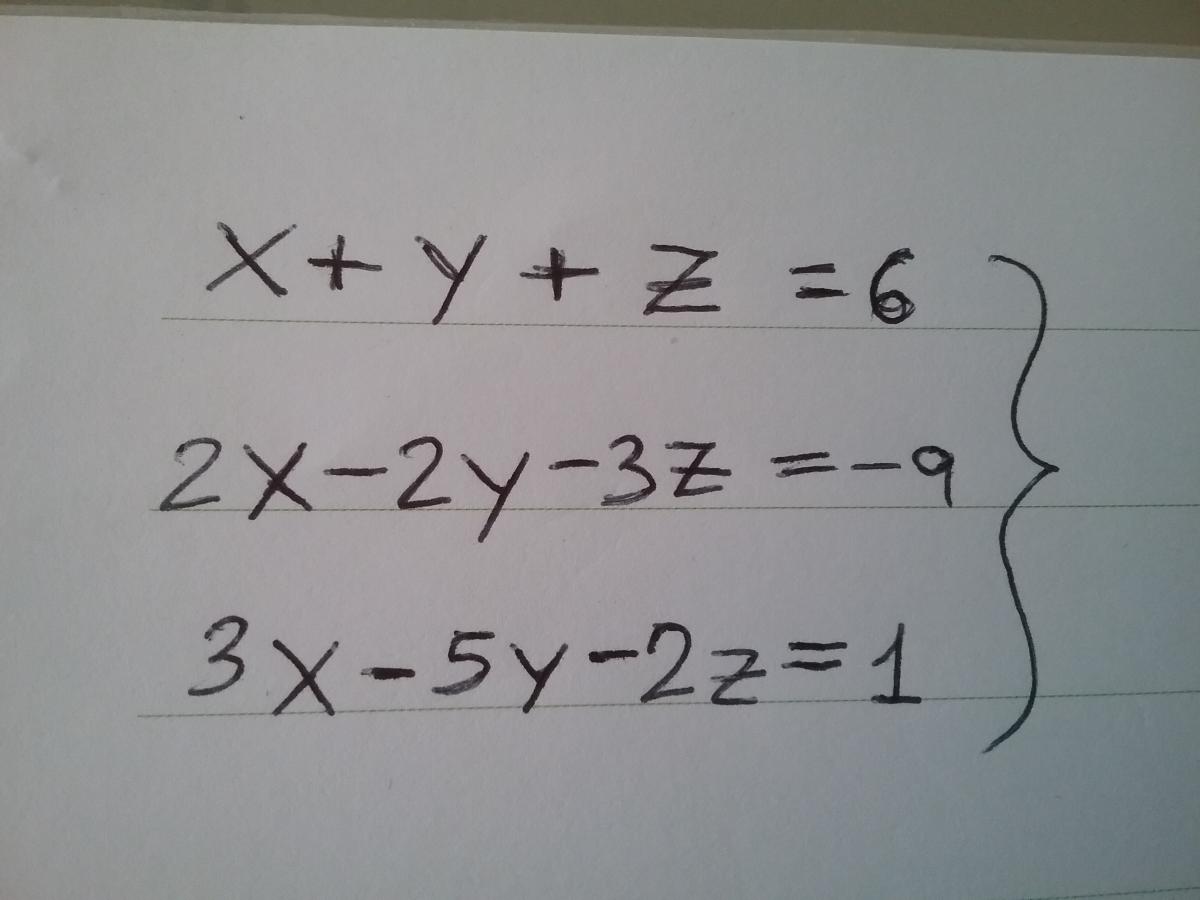 x + y + z = 6
2x - 2y - 3z = -9
3x - 5y - 2z = 1